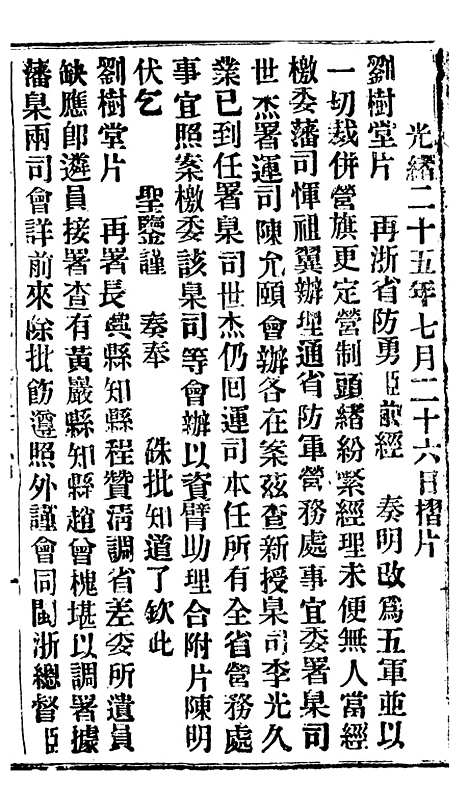 光緒二十五年七月二十六日摺片
劉樹堂片 再浙省防勇臣前經 奏明改爲五軍並以
一切裁併營旗更定營制頭緒紛繁經理未便無人當經
檄委藩司惲祖翼辦理通省防軍營務處事宜委署臬司
世杰署運司陳允頤會辦各在案茲查新授臬司李光久
業已到任署臬司世杰仍回運司本任所有全省營務處
事宜照案檄委該臬司等會辦以資臂助理合附片陳明
伏乞 聖鑒謹 奏奉 硃批知道了欽此
劉樹堂片 再署長興縣知縣程贊淸調省差委所遺員
缺應卽遴員接署查有黃巖縣知縣趙曾槐堪以調署據
藩臬兩司會詳前來除批飭遵照外謹會同閩浙總督臣